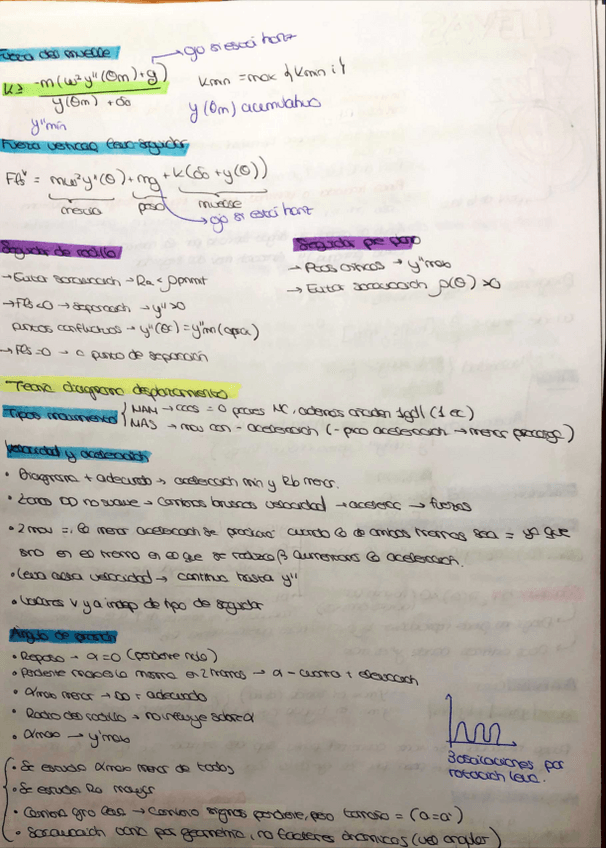 Fuerza del muelle
→ g0 si está horiz
K ≥ -m(ω²y''(θm)+g) / y(θm) + δo
Kmin = max {Kmin i}
y(θm) acumulativo
y''min
Fuerza vertical leva-seguidor
Flsᵛ = mω²y''(θ) + mg + K(δo + y(θ))
inercia peso muelle
→ g0 si está horiz
Seguidor de rodillo
→ Evitar socavación → Ra < ρprmit
→ Fls<0 → separación → y''>0
puntos conflictivos → y''(θc) = y''min
→ Fls=0 → c punto de separación
Seguidor pie plano
→ Ptos críticos → y''max
→ Evitar socavación ρ(θ) >0
Teoría diagrama desplazamiento
Tipos movimiento
MAS → mov con - aceleración (- pico aceleración → menor precarga)
Velocidad y aceleración
• Diagrama + adecuado → aceleración min y Rb menor.
• Zonas DD no suave → cambios bruscos velocidad → acelerac → fuerzas
• 2 mov =, la menor aceleración se producirá cuando β de ambos tramos sea = ya que
sino en el tramo en el que se reduzca β aumentará la aceleración.
• Leva alta velocidad → continua hasta y''
• Valores v y a indep de tipo de seguidor
Ángulo de presión
• Reposo → α=0 (pendiente nula)
• Pendiente misma en 2 tramos → α - cuanta + elevación
• αmax menor → DD + adecuado
• Radio del rodillo → no influye sobre α
• αmax → y'max
• Se estudia αmax menor de todos
• Se estudia Ro mayor
• Cambia giro leva → cambia signos pendiente, pero tamaño = (α=α')
• Socavación cambia por geometría, no factores dinámicos (vel angular)
3 oscilaciones por
rotación leva.